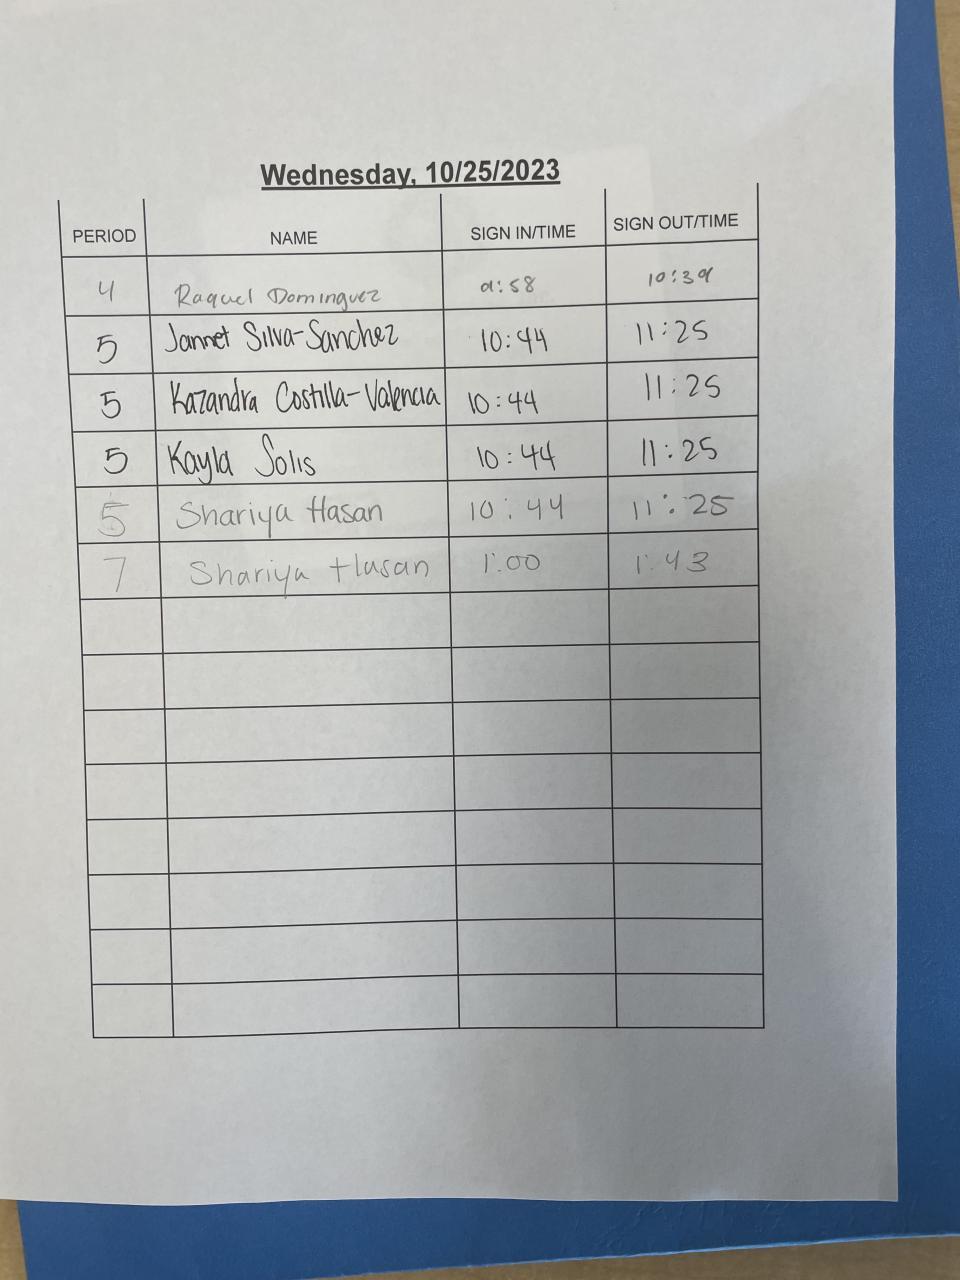 Wednesday, 10/25/2023
PERIOD NAME SIGN IN/TIME SIGN OUT/TIME
4 Raquel Dominguez 9:58 10:39
5 Jannet Silva-Sanchez 10:44 11:25
5 Kazandra Costilla-Valencia 10:44 11:25
5 Kayla Solis 10:44 11:25
5 Shariya Hasan 10:44 11:25
7 Shariya Hasan 1:00 1:43